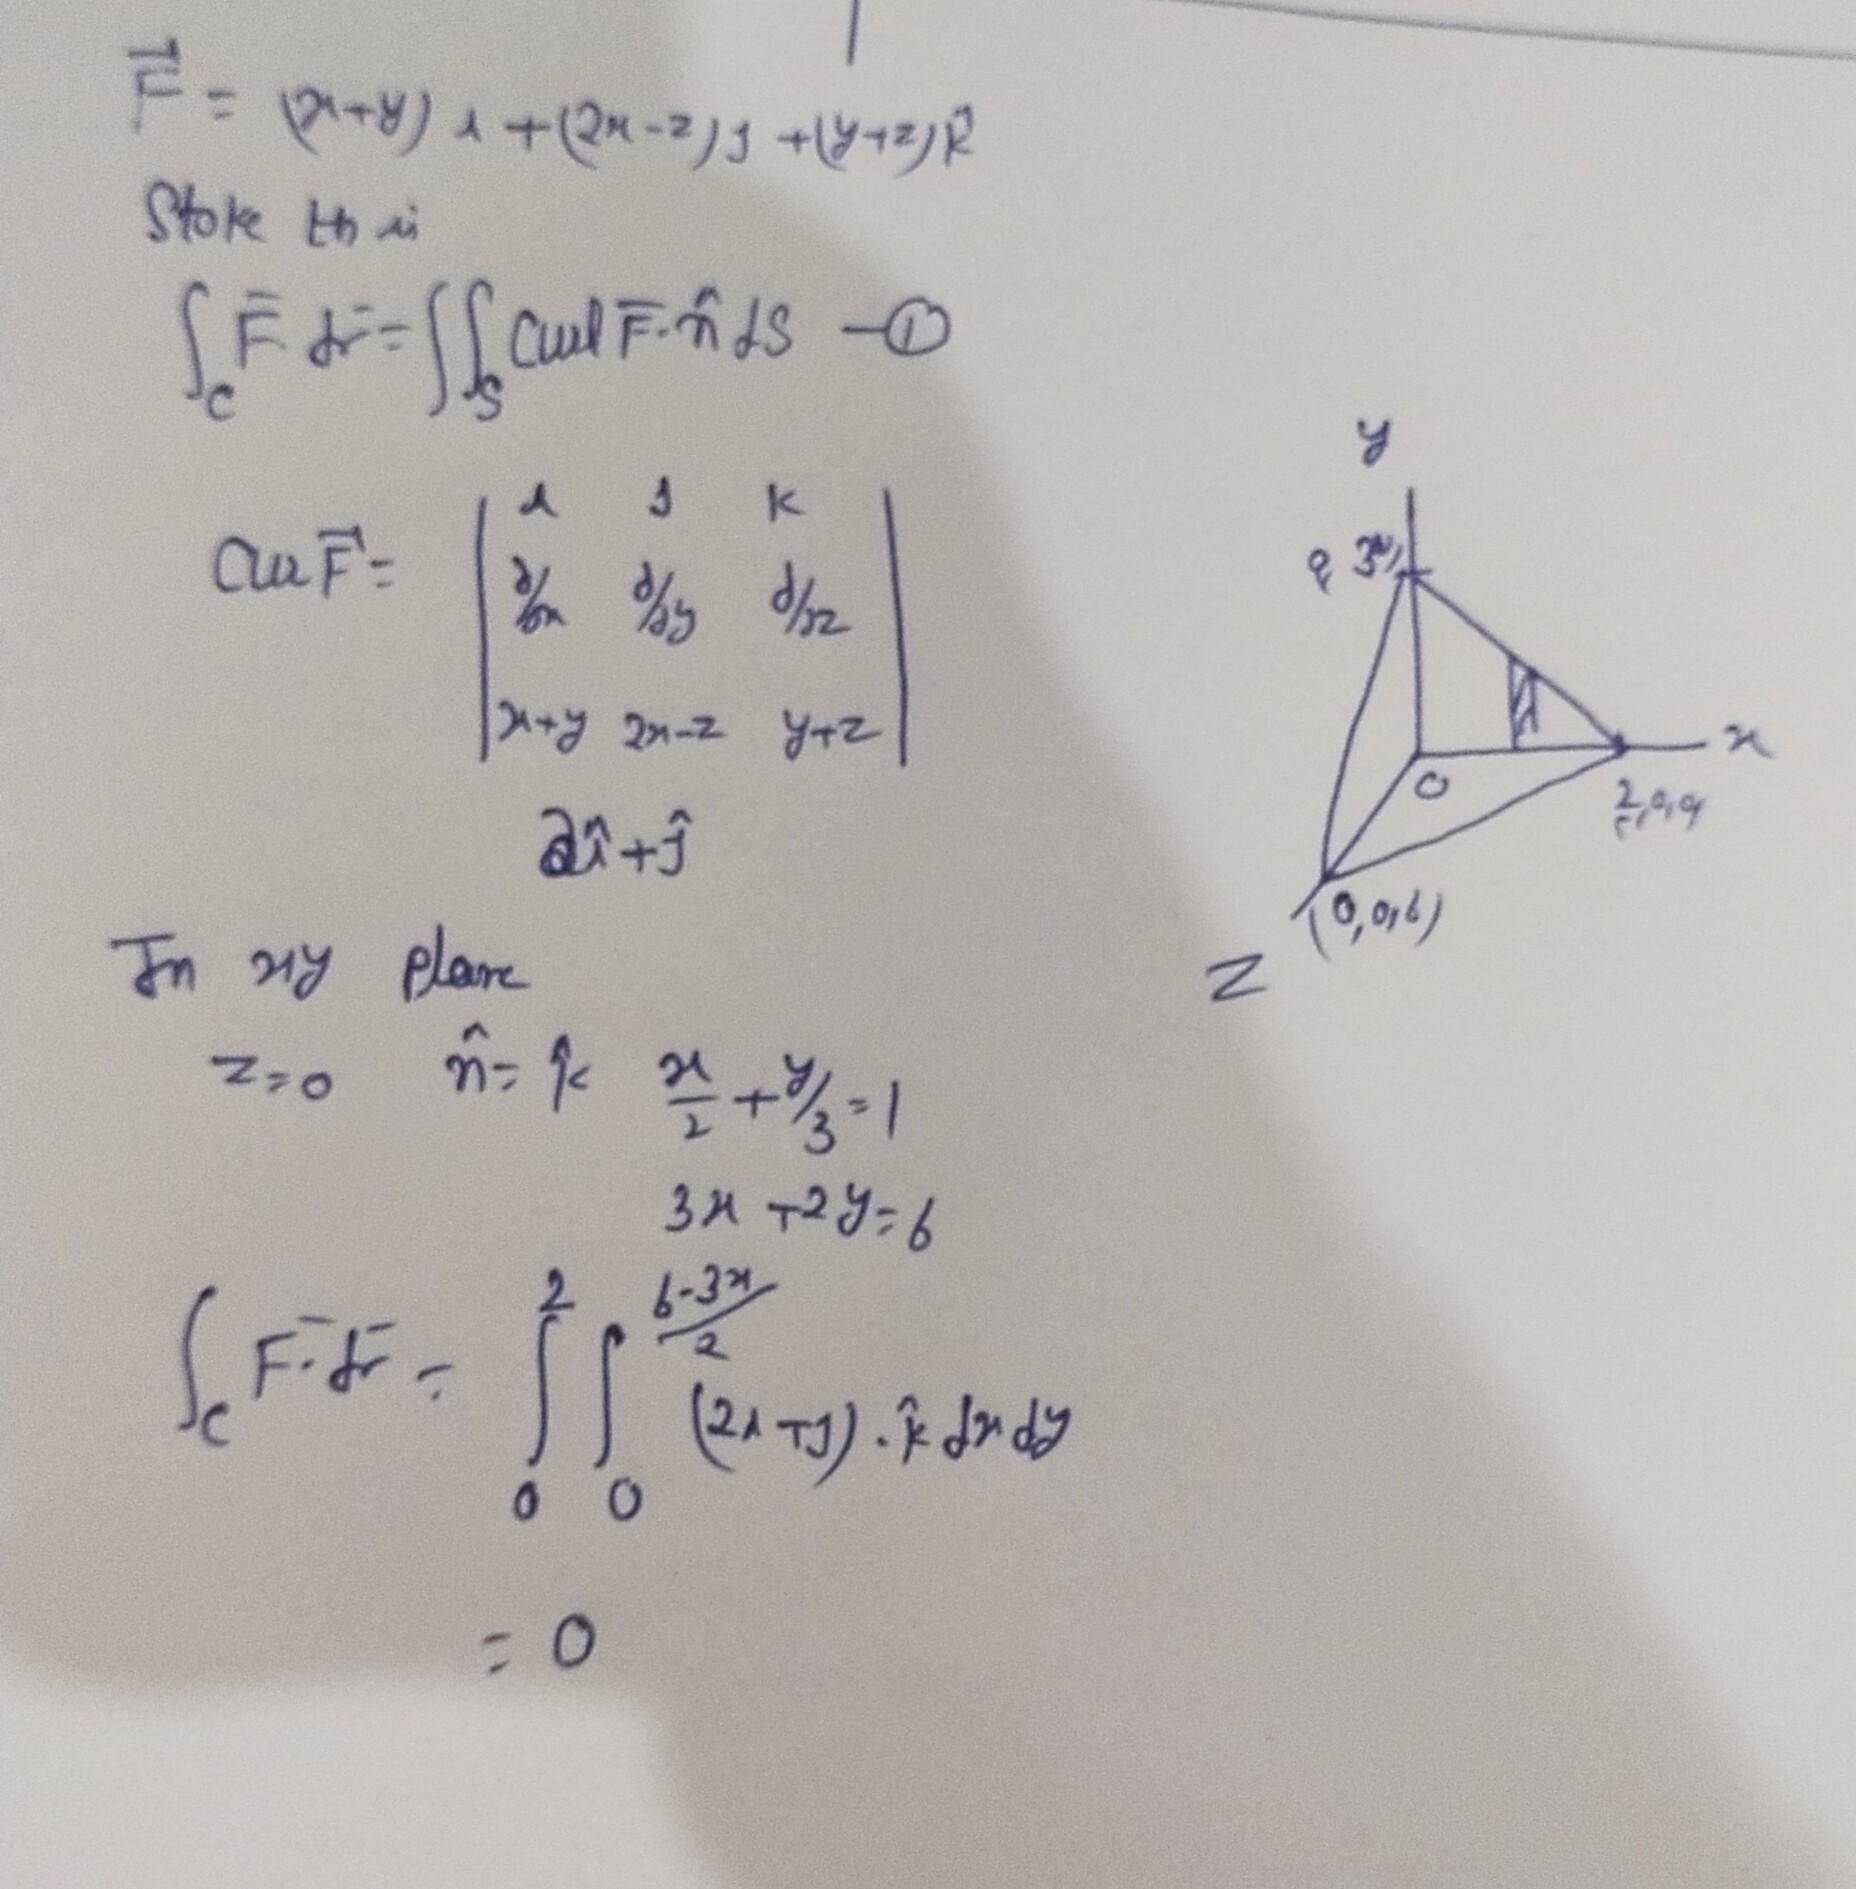 F⃗ = (x+y) i + (2x-z) j + (y+z) k̂
Stoke th is
∫_C F̄ dr̄ = ∬_S Curl F̄. n̂ dS — ①
Cur F⃗ =
| i j k |
| ∂/∂x ∂/∂y ∂/∂z |
| x+y 2x-z y+z |
2î + ĵ
In xy plane
z=0 n̂ = k̂ x/2 + y/3 = 1
3x + 2y = 6
∫_C F̄. dr̄ = ∫_0^2 ∫_0^{6-3x/2} (2i+j). k̂ dx dy
= 0
y
x
O
2,0,0
(0,0,6)
Z